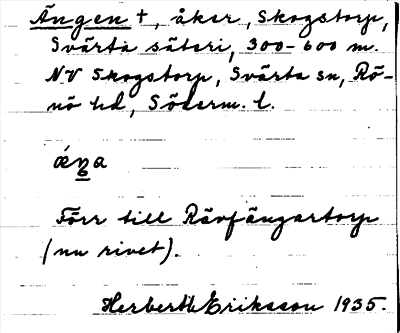 Ängen +, åker, Skogstorp,
Svärta säteri, 300-600 m.
NV Skogstorp, Svärta sn, Rö-
nö hd, Söderm. l.
Förr till Rävfängartorp
(nu rivet).
Herbert Eriksson 1935.